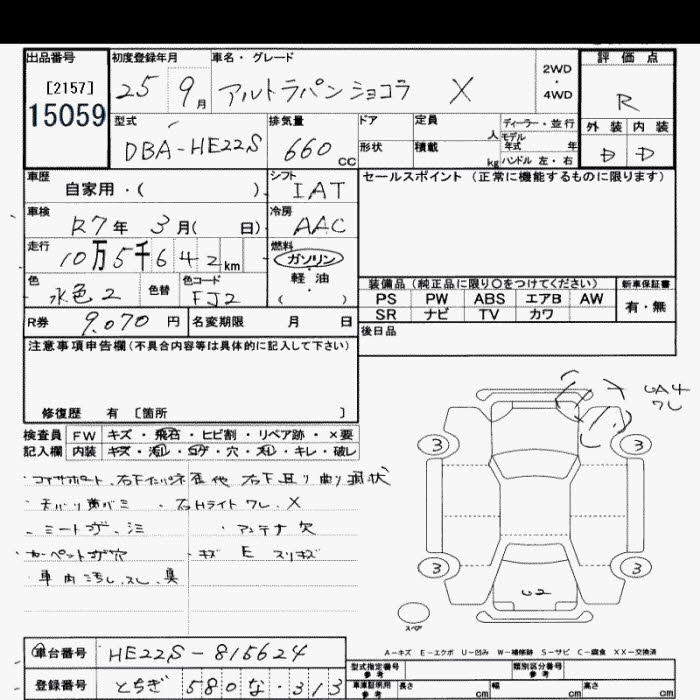 出品番号 初度登録年月 車名・グレード 評価点
[2157] 25 9月 アルトラパンショコラ X 2WD・4WD R
15059 型式 排気量 ドア 定員 人 ディーラー・並行 外装 内装
DBA-HE22S 660cc 形状 積載 kg モデル年式 年 ハンドル 左・右 D D
車歴 自家用・( ) シフト IAT セールスポイント(正常に機能するものに限ります)
車検 R7年 3月( 日) 冷房 AAC
走行 10万5千642km 燃料 ガソリン・軽油 ( )
色 水色2 色替 色コード FJ2 装備品(純正品に限り○をつけてください) 新車保証書
PS PW ABS エアB AW 有・無
SR ナビ TV カワ
R券 9,070円 名変期限 月 日 後日品
注意事項申告欄(不具合内容等は具体的に記入して下さい)
修復歴 有 〔箇所 〕
UA4
ワレ
検査員 FW キズ・飛石・ヒビ割・リペア跡・×要
記入欄 内装 キズ・汚レ・コゲ・穴・スレ・キレ・破レ
・コアサポート、右Fインパネ 右F 曲り 現状
・右Hライト ワレ、X
・アンテナ欠
・カーペット 穴 ・キズ E スリキズ
・車内汚レ、スレ、臭
3 3
3 3
U2
スペア
A-キズ E-エクボ U-凹み W-補修跡 S-サビ C-腐食 XX-交換済
車台番号 HE22S-815624 型式指定番号 参考 類別区分番号 参考
登録番号 とちぎ 580 な・313 車庫証明用 参考 長さ cm 幅 cm 高さ cm